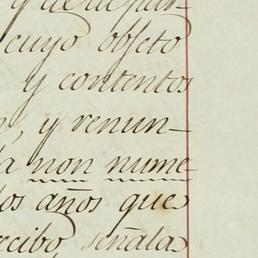 cuyo objeto
y contentos
, y renun-
a non nume-
los años que
recibo, señala